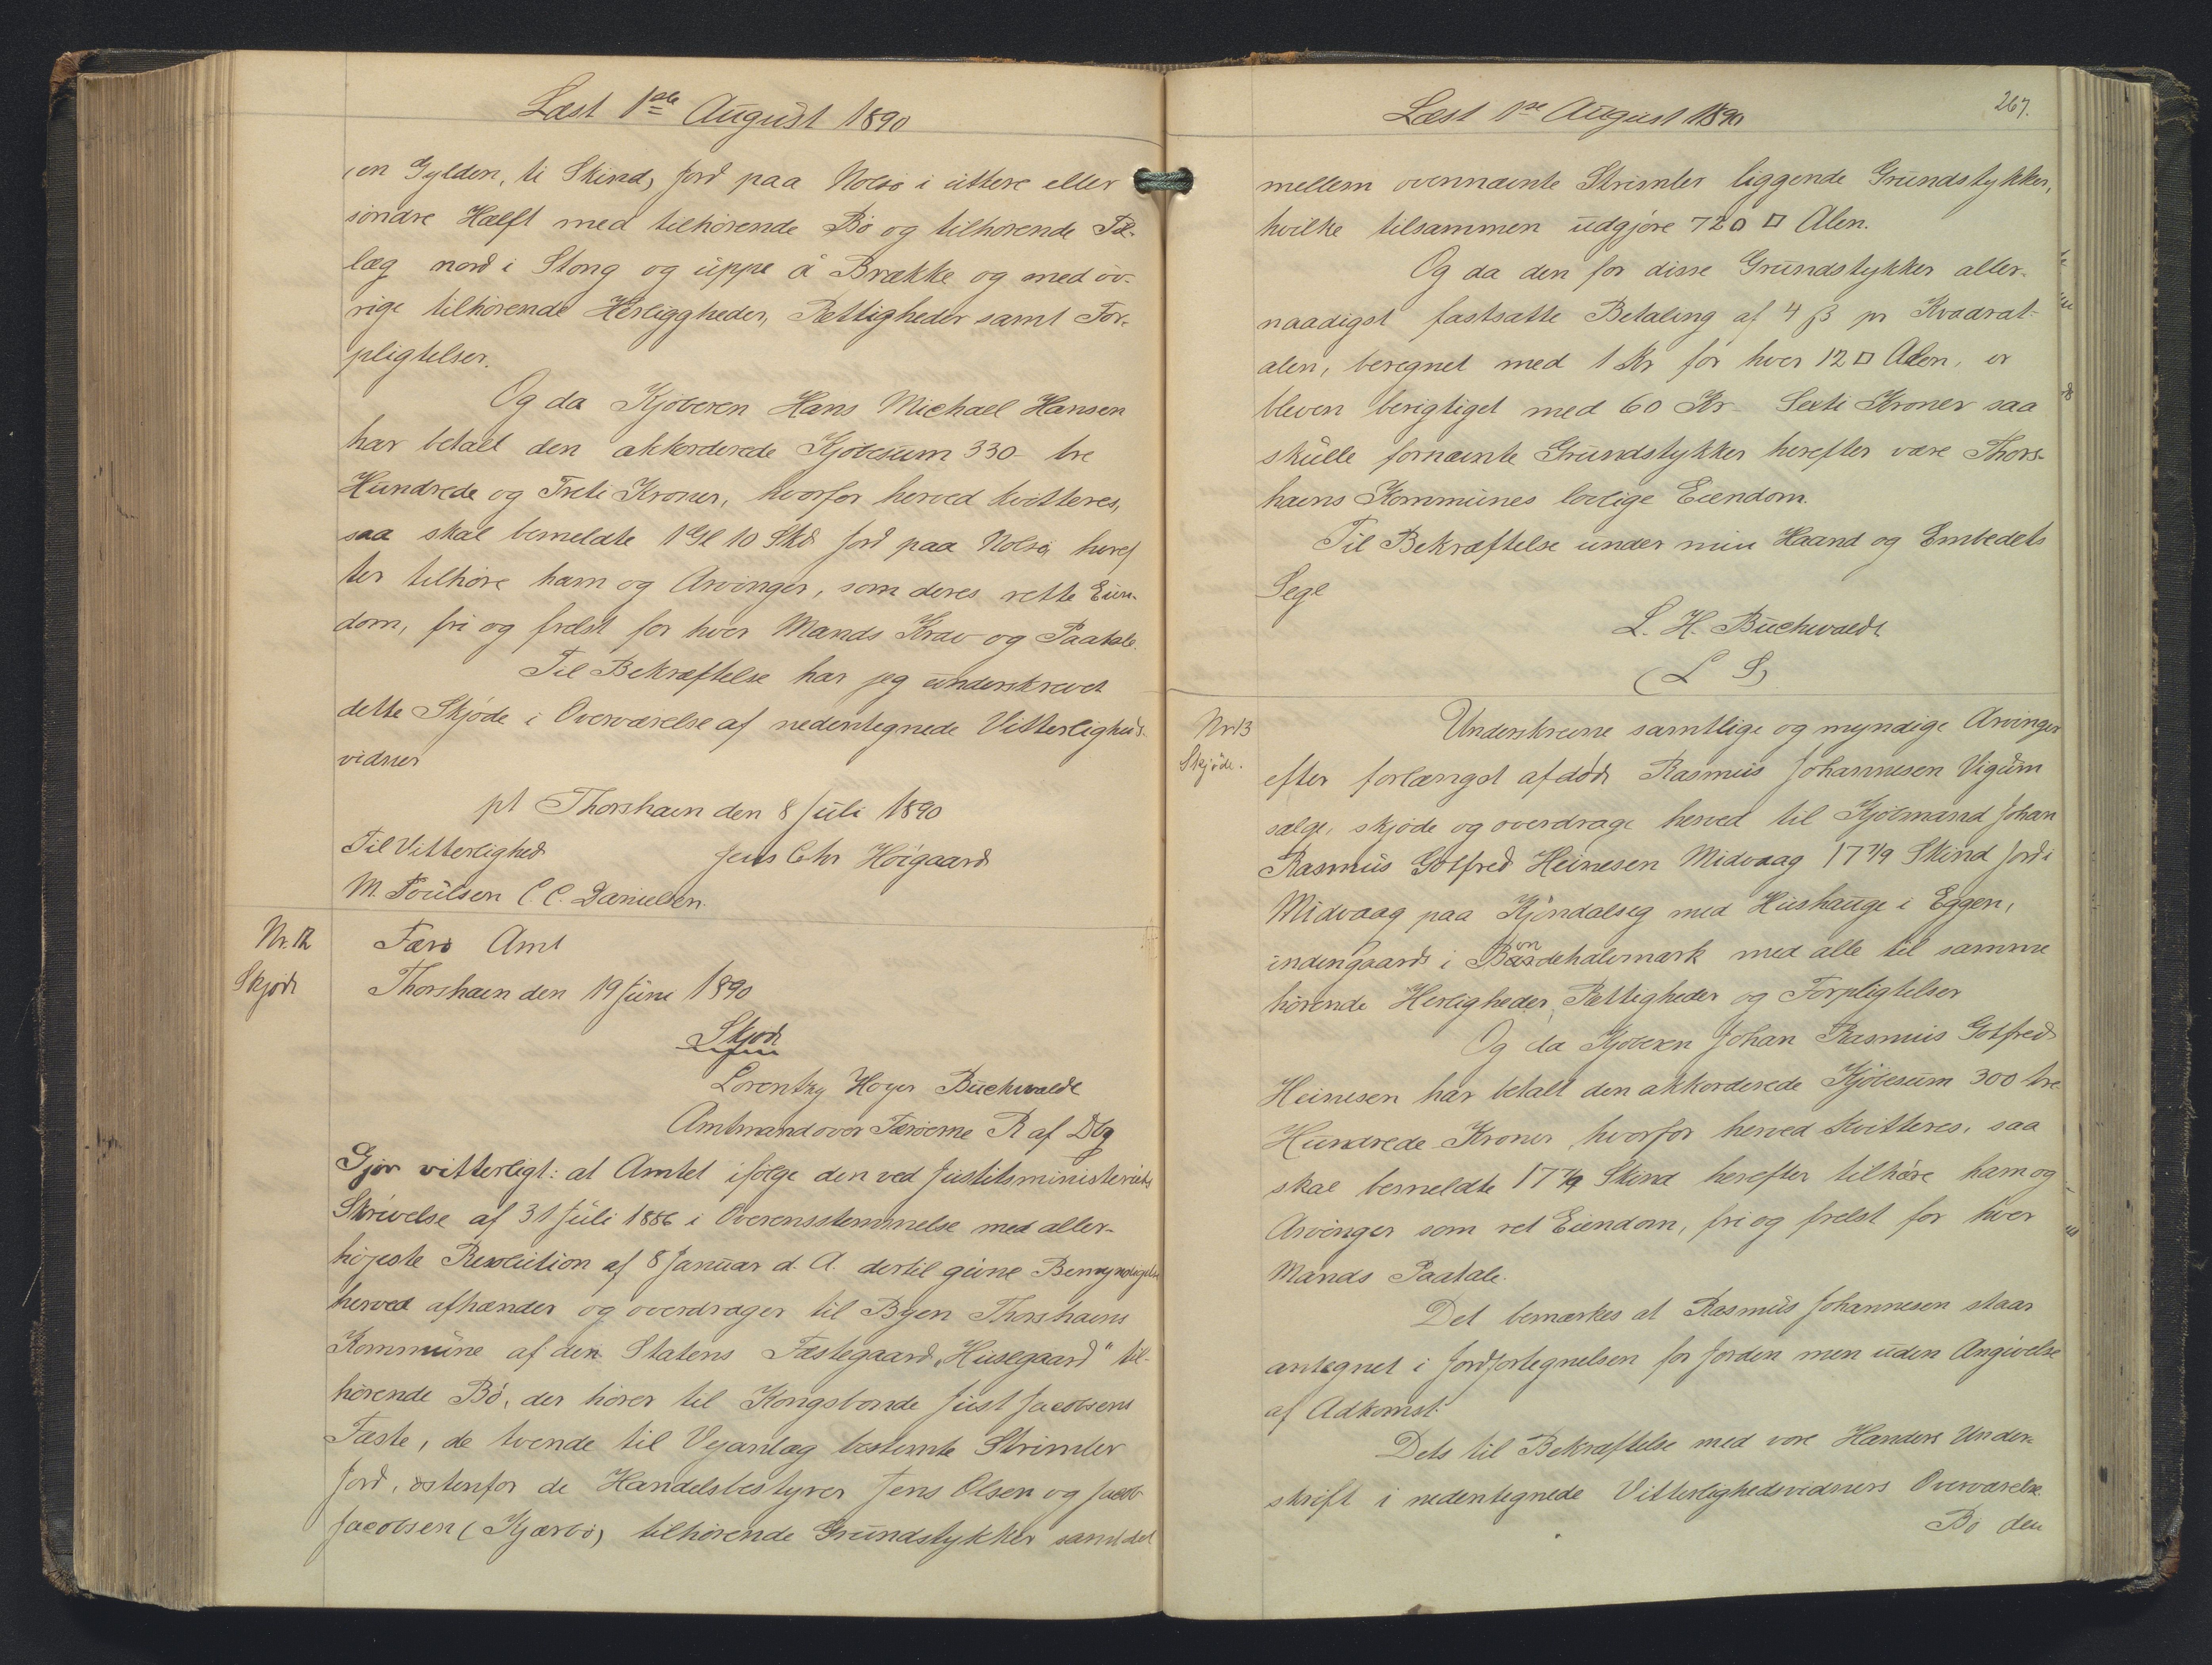 Læst 1ste August 1890
(en Gylden, ti Skind) Jord paa Nolsø i uttere eller
söndre Hælft med tilhörende Bö og tilhörende Til-
læg nord i Stong og uppe á Brække og med öv-
rige tilhörende Herliggheder, Rettigheder samt For-
pligtelser.
Og da Kjöberen Hans Michael Hansen
har betalt den akkorderede Kjöbesum 330 tre
Hundrede og Treti Kroner, hvorfor herved kvitteres,
saa skal bemeldte 1 Gl 10 Skd Jord paa Nolsø heref
ter tilhöre ham og Arvinger, som deres rette Eien-
dom, fri og frelst for hver Mands Krav og Paatale.
Til Bekræftelse har jeg underskrevet
dette Skjöde i Overværelse af nedentegnede Vitterligheds-
vidner
pt Thorshavn den 8 Juli 1890
Til Vitterlighed Jens Chr Höigaard
M. Poulsen C. C. Danielsen.
Nr. 12 Færø Amt
Skjöde Thorshavn den 19 Juni 1890
Skjöde
Lorentz Høyer Buchwaldt
Amtmand over Færöerne R af Dbg
Gjör vitterligt: at Amtet ifölge den ved Justitsministeriets
Skrivelse af 31 Juli 1886 i Overensstemmelse med aller-
höjeste Resolution af 8 Januar d. A. dertil givne Bemyndigelse
herved afhænder og overdrager til Byen Thorshavns
Kommune af den Statens Fæstegaard "Husegaard" til-
hörende Bö, der hörer til Kongsbonde Just Jacobsens
Fæste, de tvende til Vejanlæg bestemte Strimler
Jord, östenfor de Handelsbestyrer Jens Olsen og Jacob
Jacobsen (Kjærbø) tilhörende Grundstykker samt det
267.
Læst 1ste August 1890
mellem ovennævnte Strimler liggende Grundstykker,
hvilke tilsammen udgjöre 720 □ Alen.
Og da den for disse Grundstykker aller-
naadigst fastsatte Betaling af 4 ß pr Kvadrat-
alen, beregnet med 1 Kr for hver 12 □ Alen, er
bleven berigtiget med 60 Kr Sexti Kroner saa
skulle fornævnte Grundstykker herefter være Thors-
havns Kommunes lovlige Eiendom.
Til Bekræftelse under min Haand og Embedets
Segl
L. H. Buchwaldt
(L S)
Nr 13 Underskrevne samtlige og myndige Arvinger
Skjöde. efter forlængst afdöde Rasmus Johannesen Vigum
sælge, skjöde og overdrage herved til Kjöbmand Johan
Rasmus Gotfred Heinesen Midvaag 17 7/9 Skind Jord i
Midvaag paa Kjöndalseg med Hushauge i Eggen,
indengaards i Bondehalvmark med alle til samme
hörende Herligheder, Rettigheder og Forpligtelser
Og da Kjöberen Johan Rasmus Gotfred
Heinesen har betalt den akkorderede Kjöbesum 300 tre
Hundrede Kroner hvorfor herved kvitteres, saa
skal bemeldte 17 7/9 Skind herefter tilhöre ham og
Arvinger som ret Eiendom, fri og frelst for hver
Mands Paatale.
Det bemærkes at Rasmus Johannesen staar
antegnet i Jordfortegnelsen for Jorden men uden Angivelse
af Adkomst.
Dets til Bekræftelse med vore Hænders Under-
skrift i nedentegnede Vitterlighedsvidners Overværelse.
Bö den